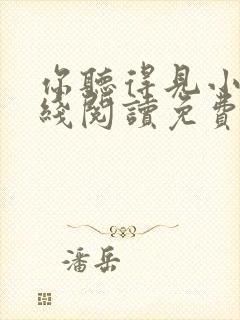 你聽得見小
綫閱讀免費
潘岳